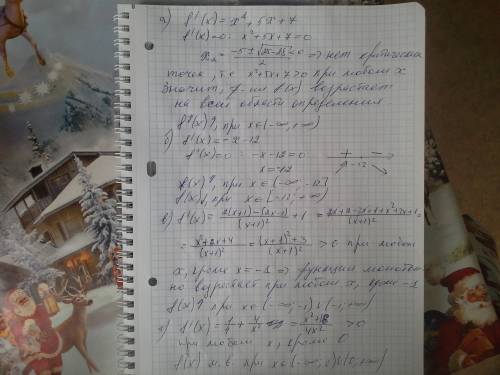 а) f'(x) = x² + 5x + 7
f'(x)=0: x²+5x+7=0
нет критических
точек, т.к. x²+5x+7>0 при любом x
Значит, ф-ия f(x) возрастает
на всей области определения
f(x)↑, при x∈(-∞,+∞)
б) f'(x) = -x-12
f'(x)=0 : -x-12=0
x=-12
+ -12 -
f(x)↑, при x∈(-∞,-12]
f(x)↓, при x∈[-12,+∞)
в) f'(x) = (2(x+1)-(2x-1))/(x+1)² + 1 =
= (x²+2x+4)/(x+1)² = ((x+1)²+3)/(x+1)² >0 при любом
x, кроме x=-1 ⇒ функция
возрастает при любом x, кроме -1
f(x)↑ при x∈(-∞,-1)∪(-1,+∞)
г) f'(x) = 1/4 + 4/x² = (x²+16)/4x² >0
при любом x, кроме 0
f(x) при x∈(-∞,0)∪(0,+∞)